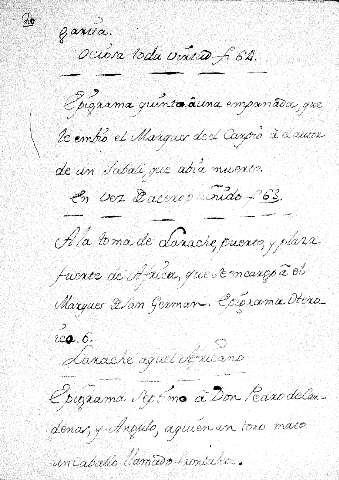 20
garcia.
Ociosa toda virtud. f. 64.
Epigrama quinto à una empanada, que
le embio el Marques de el Carpio à el autor
de un Jabali, que abia muerto.
En vez D acero bruñido f. 63.
A la toma de Larache, puerto, y plaza
fuerte de Africa, que se encargo à el
Marques D San German. Epigrama
6.
Larache aquel Africano
Epigrama Septimo à Don Pedro de Car-
denas, y Angulo, a quien un toro mato
un caballo llamado